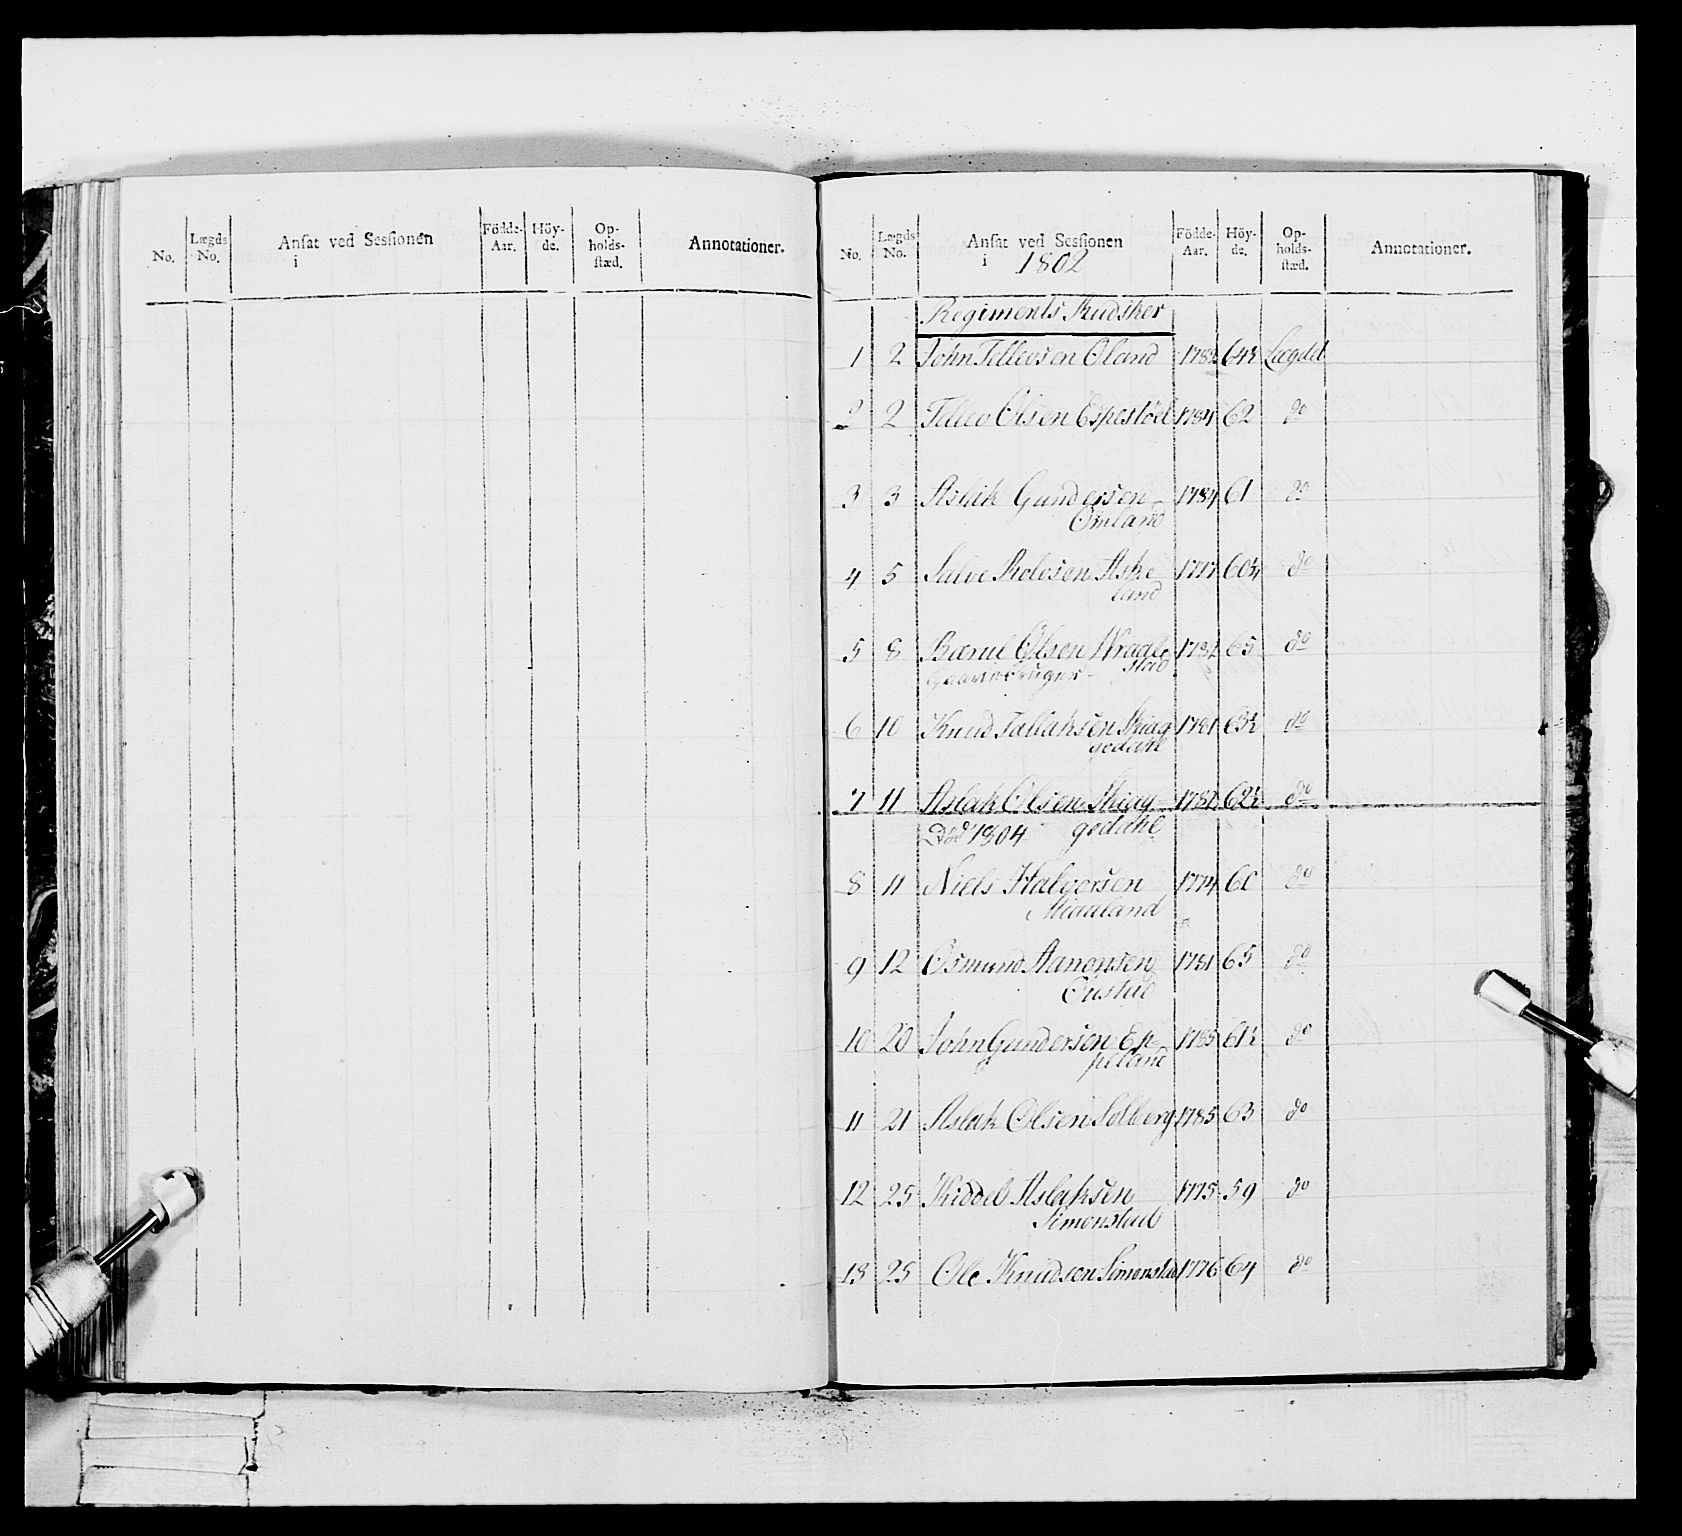 No. Lægds No. Ansat ved Sessionen i Födde-Aar. Höy-de. Op-holds-stæd. Annotationer.
No. Lægds No. Ansat ved Sessionen i 1802 Födde-Aar. Höy-de. Op-holds-stæd. Annotationer.
Regiments Kudsker
1 2 John Tellevsen Öland 64½ Lægdet
2 2 Tellev Olsen Espestöel 1784 62 do
3 3 Aslak Gundersen 1784 61 do
Omland
4 5 Salve Aske 60¾ do
land
5 8 Olsen 65 do
stad
Gaardbruger
6 10 Knud Tallaksen Skiag 1781 63½ do
gedahl
7 11 Aslak Olsen Skiag 62½ do
Död 1804 gedahl
8 11 Niels Halvorsen 1774 60 do
Miaaland
9 12 Osmund Aanonsen 1781 65 do
10 20 John Gundersen Ep- 1785 61½ do
peland
11 21 Aslak Olsen Solberg 1785 63 do
12 25 Kiddel Aslaksen 1775 59 do
Simonstad
13 25 Ole Knudsen Simonstad 1776 64 do